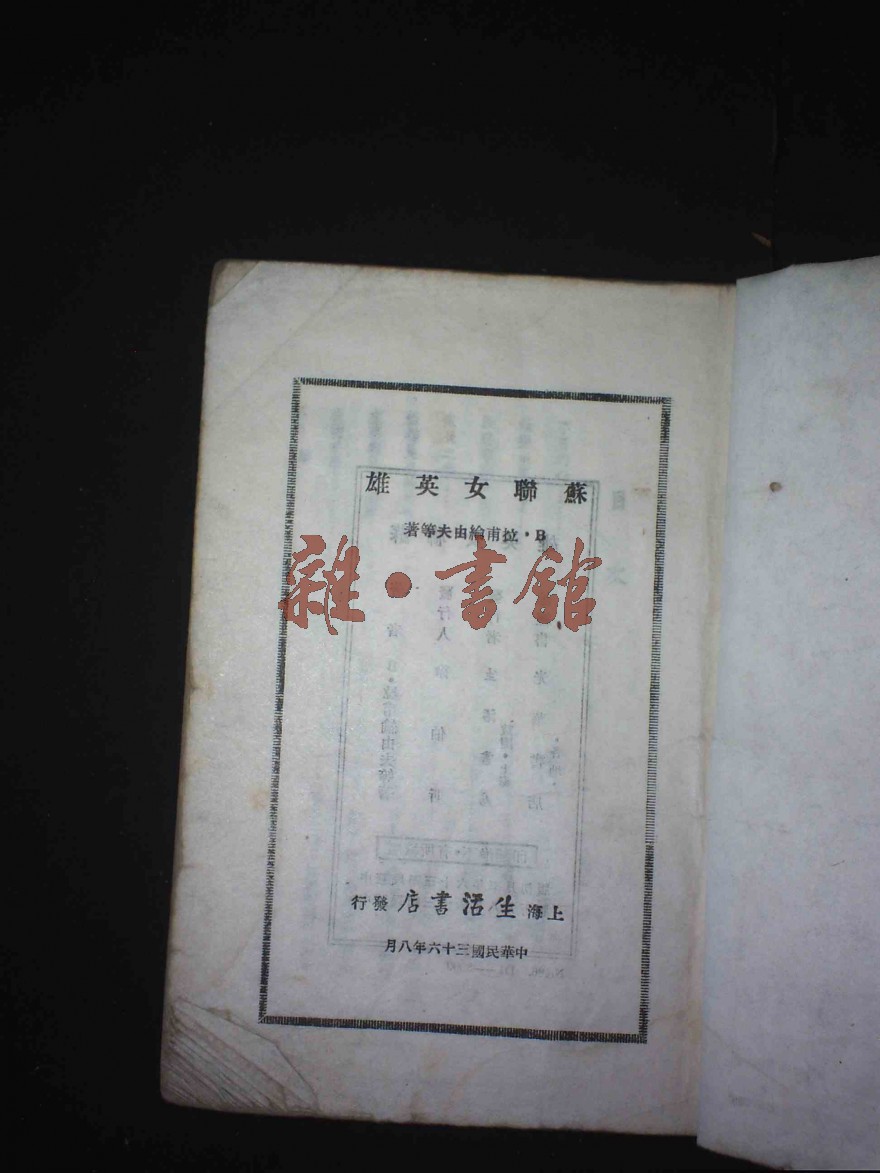 蘇聯女英雄
B・拉甫綸由夫等著
雜・書館
上海生活書店發行
中華民國三十六年八月